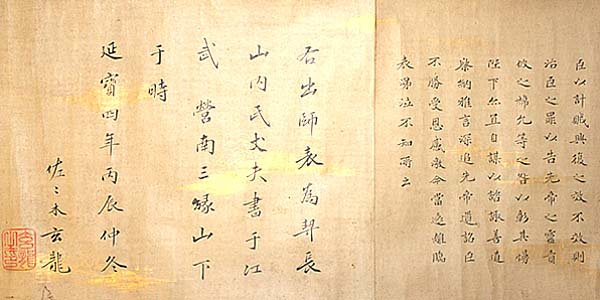 臣以討賊興復之效不效則
治臣之罪以告先帝之靈責
攸之禕允等之咎以彰其慢
陛下亦宜自謀以諮諏善道
察納雅言深追先帝遺詔臣
不勝受恩感激今當遠離臨
表涕泣不知所云
右出師表為契長
山内氏丈夫書于江
武營南三縁山下
于時
延寳四年丙辰仲冬
佐々木玄龍